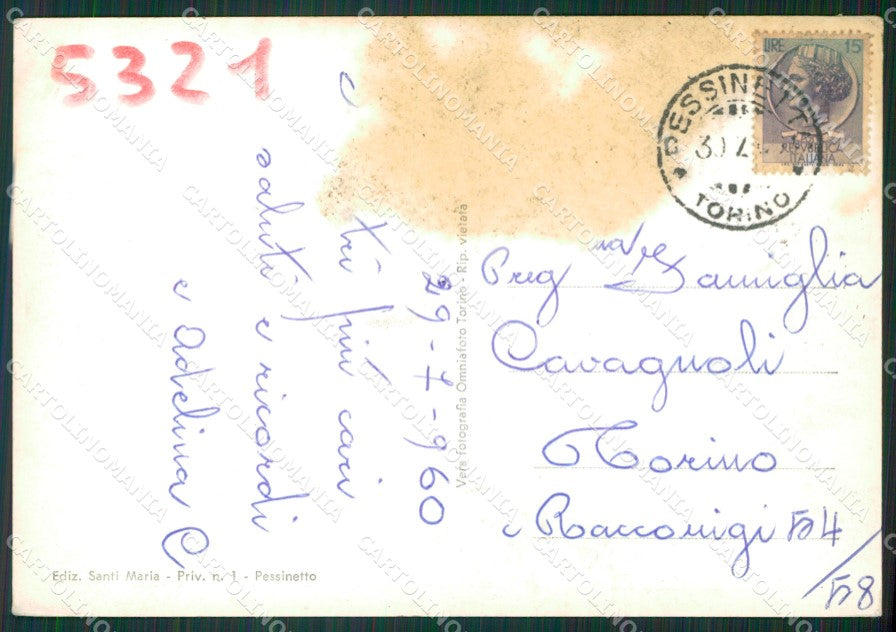 5321
LIRE 15
REPVBBLICA
ITALIANA
PESSINETTO
TORINO
29-7-960
tri più cari
saluti e ricordi
e Adelina C
Preg Famiglia
Cavagnoli
Torino
Racconigi 54
/58
Vera fotografia Omniafoto Torino - Rip. vietata
Ediz. Santi Maria - Priv. n. 1 - Pessinetto
CARTOLINOMANIA